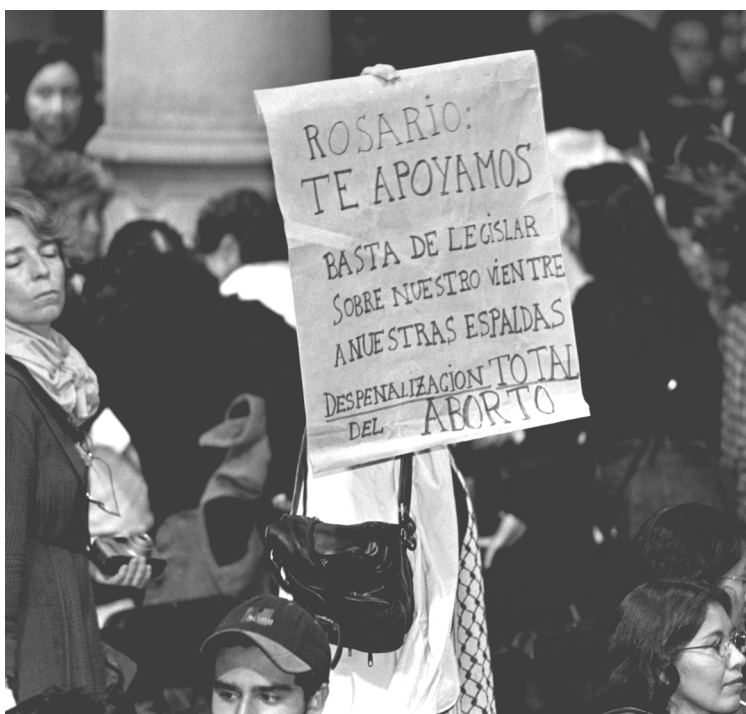 ROSARIO:
TE APOYAMOS
BASTA DE LEGISLAR
SOBRE NUESTRO VIENTRE
A NUESTRAS ESPALDAS
DESPENALIZACION TOTAL
DEL ABORTO